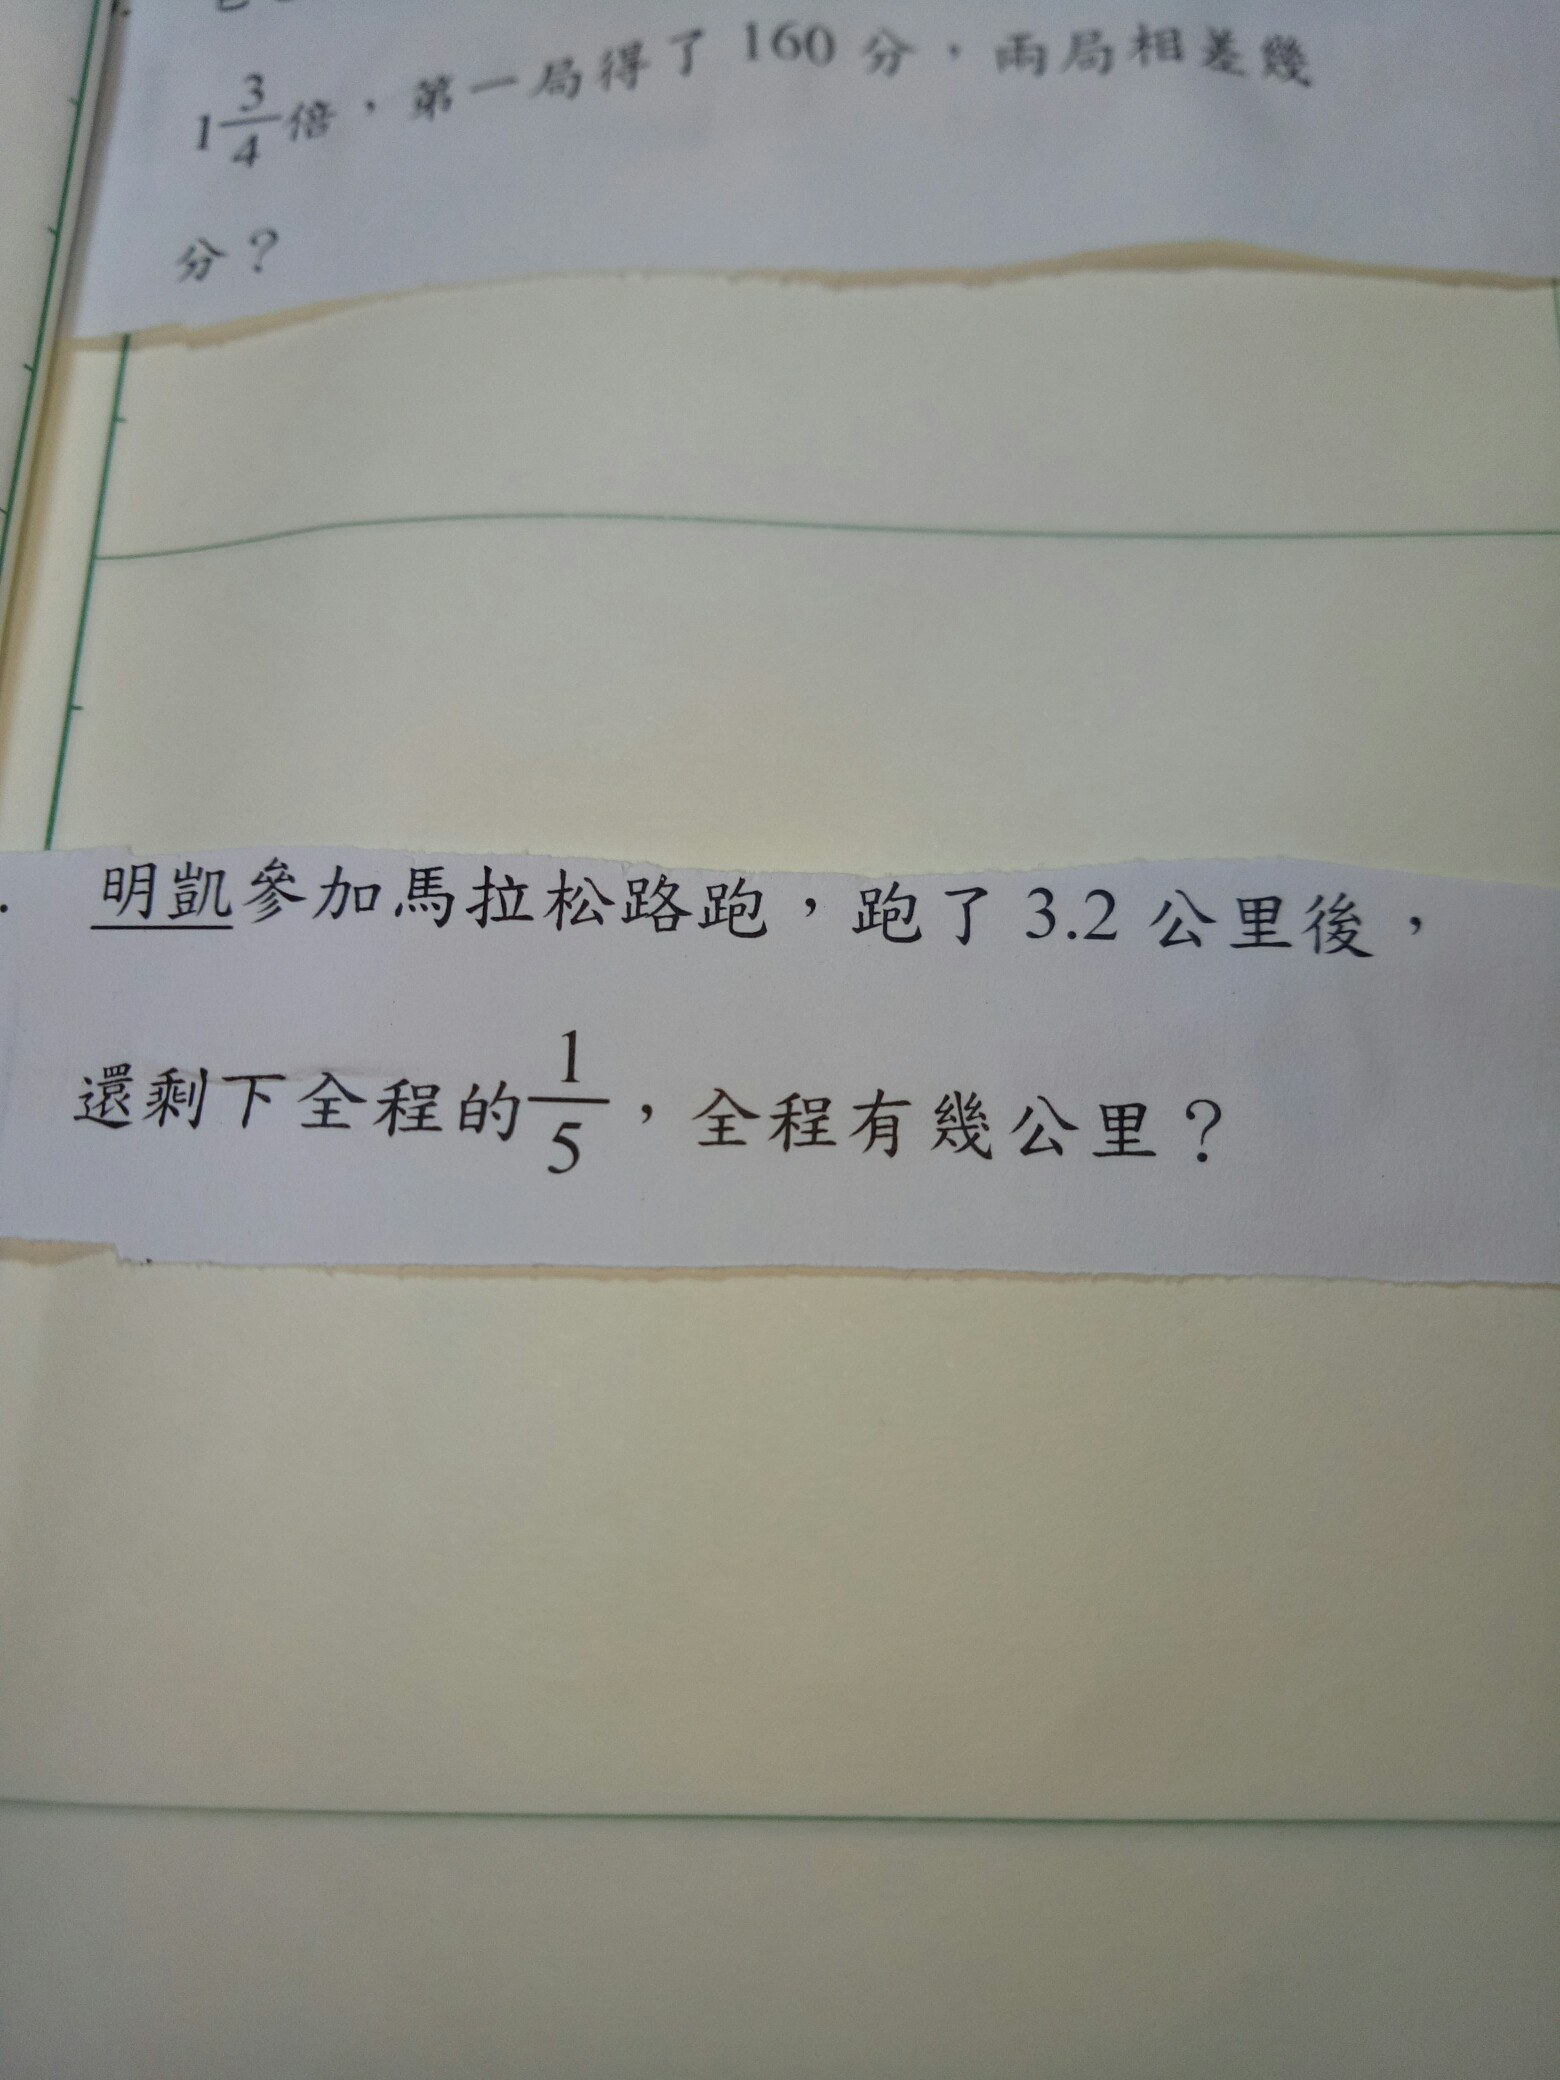 1 3/4 倍，第一局得了 160 分，兩局相差幾
分？
明凱參加馬拉松路跑，跑了 3.2 公里後，
還剩下全程的 1/5，全程有幾公里？